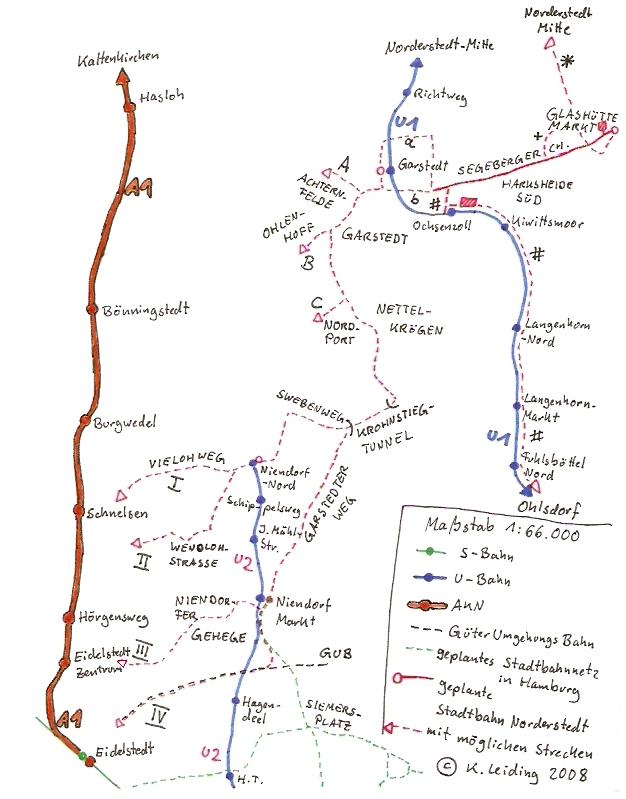 Norderstedt
Mitte
Kaltenkirchen
Norderstedt-Mitte
*
Hasloh
Richtweg
GLASHÜTTE
MARKT
U1
a
+
CH.
Garstedt
SEGEBERGER
A
ACHTERN-
FELDE
A1
b
#
HARKSHEIDE
SÜD
Ochsenzoll
Kiwittsmoor
OHLEN-
HOFF
GARSTEDT
B
#
Bönningstedt
C
NORD-
PORT
NETTEL-
KRÖGEN
Langenhorn
-Nord
SWEBENWEG
KROHNSTIEG-
TUNNEL
Langenhorn-
Markt
Burgwedel
U1
#
VIELOHWEG
I
Niendorf
-Nord
Fuhlsbüttel
Nord
Schippelsweg
GARSTEDTER
WEG
Ohlsdorf
Schnelsen
J. Mähl-
Str.
II
WENDLOH-
STRASSE
U2
Maßstab 1:66.000
S-Bahn
U-Bahn
NIENDOR-
FER
GEHEGE
Niendorf
Markt
AKN
Hörgensweg
Güter Umgehungs Bahn
Eidelstedt
Zentrum
III
GUB
geplantes Stadtbahnnetz
in Hamburg
geplante
Stadtbahn Norderstedt
mit möglichen Strecken
IV
Hagen-
deel
SIEMERS-
PLATZ
A1
Eidelstedt
U2
H.T.
© K. Leiding 2008